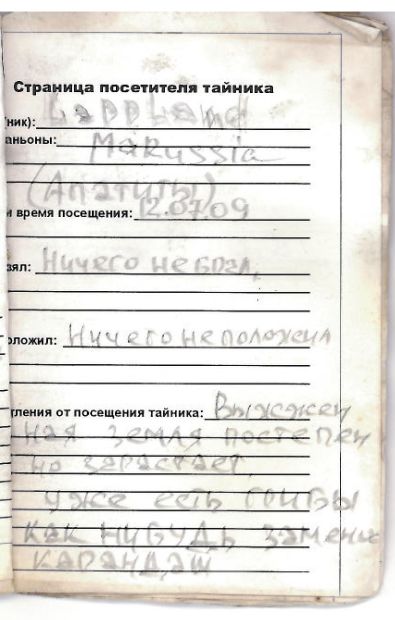 Страница посетителя тайника
Lappland
ник):
аньоны: Marussia
(Апатиты)
и время посещения: 12.07.09
зял: Ничего не взял,
оложил: Ничего не положил
тления от посещения тайника: Выжжен
ная земля постепен
но зарастает,
уже есть грибы
как нибудь замены
карандаш